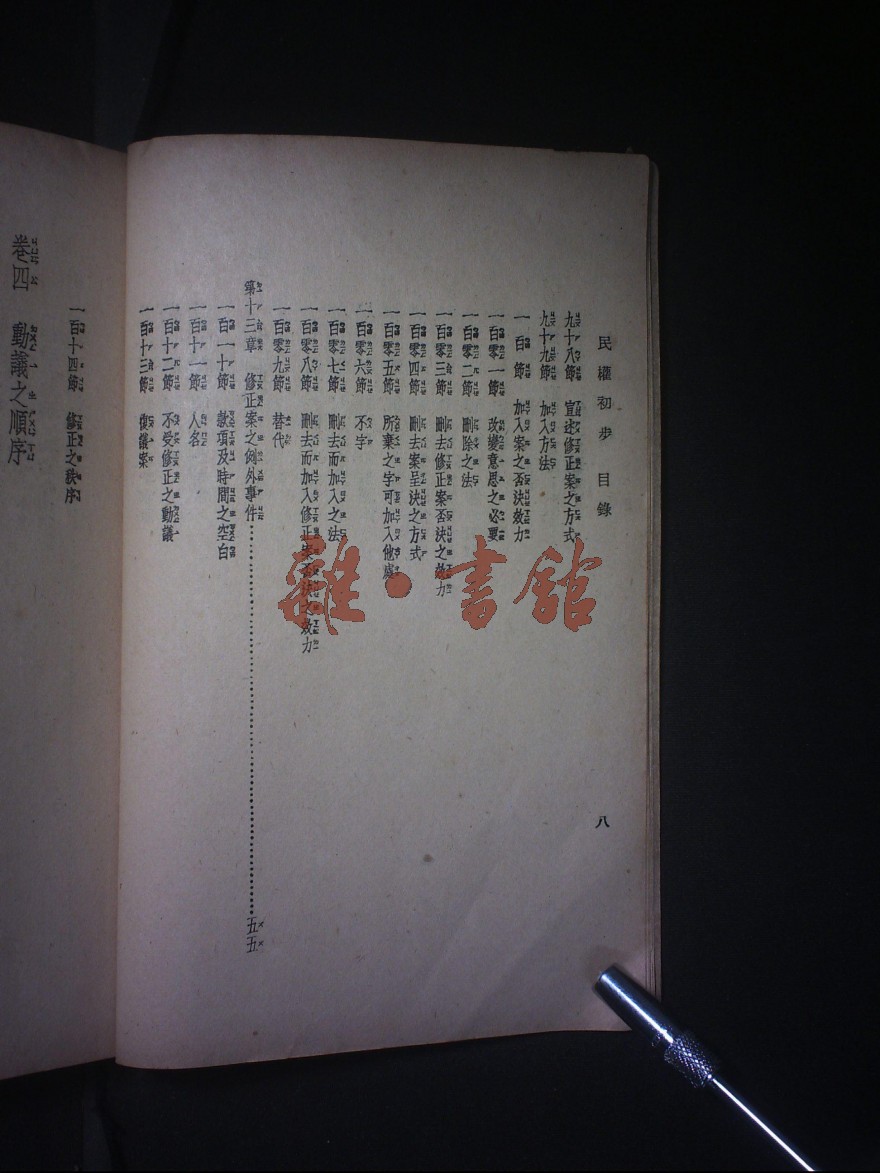 民權初步 目錄
八
九十八節 宣述修正案之方式
九十九節 加入方法
一百節 加入案之否決效力
一百零一節 改變意思之必要
一百零二節 刪除之法
一百零三節 刪去修正案否決之效力
一百零四節 刪去案呈決之方式
一百零五節 所棄之字可加入他處
一百零六節 不字
一百零七節 刪去而加入之法
一百零八節 刪去而加入修正案否決之效力
一百零九節 替代
第十三章 修正案之例外事件 五五
一百一十節 款項及時間之空白
一百十一節 人名
一百十二節 不受修正之動議
一百十三節 復議案
一百十四節 修正之秩序
卷四 動議之順序
雜·書館